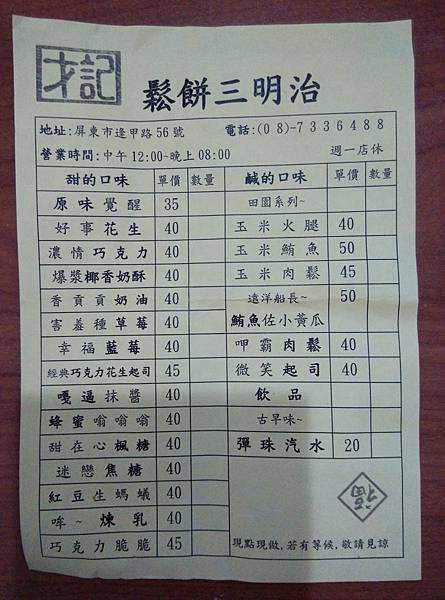 才記
鬆餅三明治
地址:屏東市逢甲路56號 電話:(08)-7336488
營業時間:中午12:00~晚上08:00 週一店休
甜的口味 單價 數量 鹹的口味 單價 數量
原味覺醒 35 田園系列~
好事花生 40 玉米火腿 40
濃情巧克力 40 玉米鮪魚 50
爆漿椰香奶酥 40 玉米肉鬆 45
香貢貢奶油 40 遠洋船長~ 50
害羞種草莓 40 鮪魚佐小黃瓜
幸福藍莓 40 呷霸肉鬆 40
經典巧克力花生起司 45 微笑起司 40
嘎逼抹醬 40 飲品
蜂蜜嗡嗡嗡 40 古早味~
甜在心楓糖 40 彈珠汽水 20
迷戀焦糖 40
紅豆生螞蟻 40
哞~煉乳 40
巧克力脆脆 45
福
現點現做,若有等候,敬請見諒